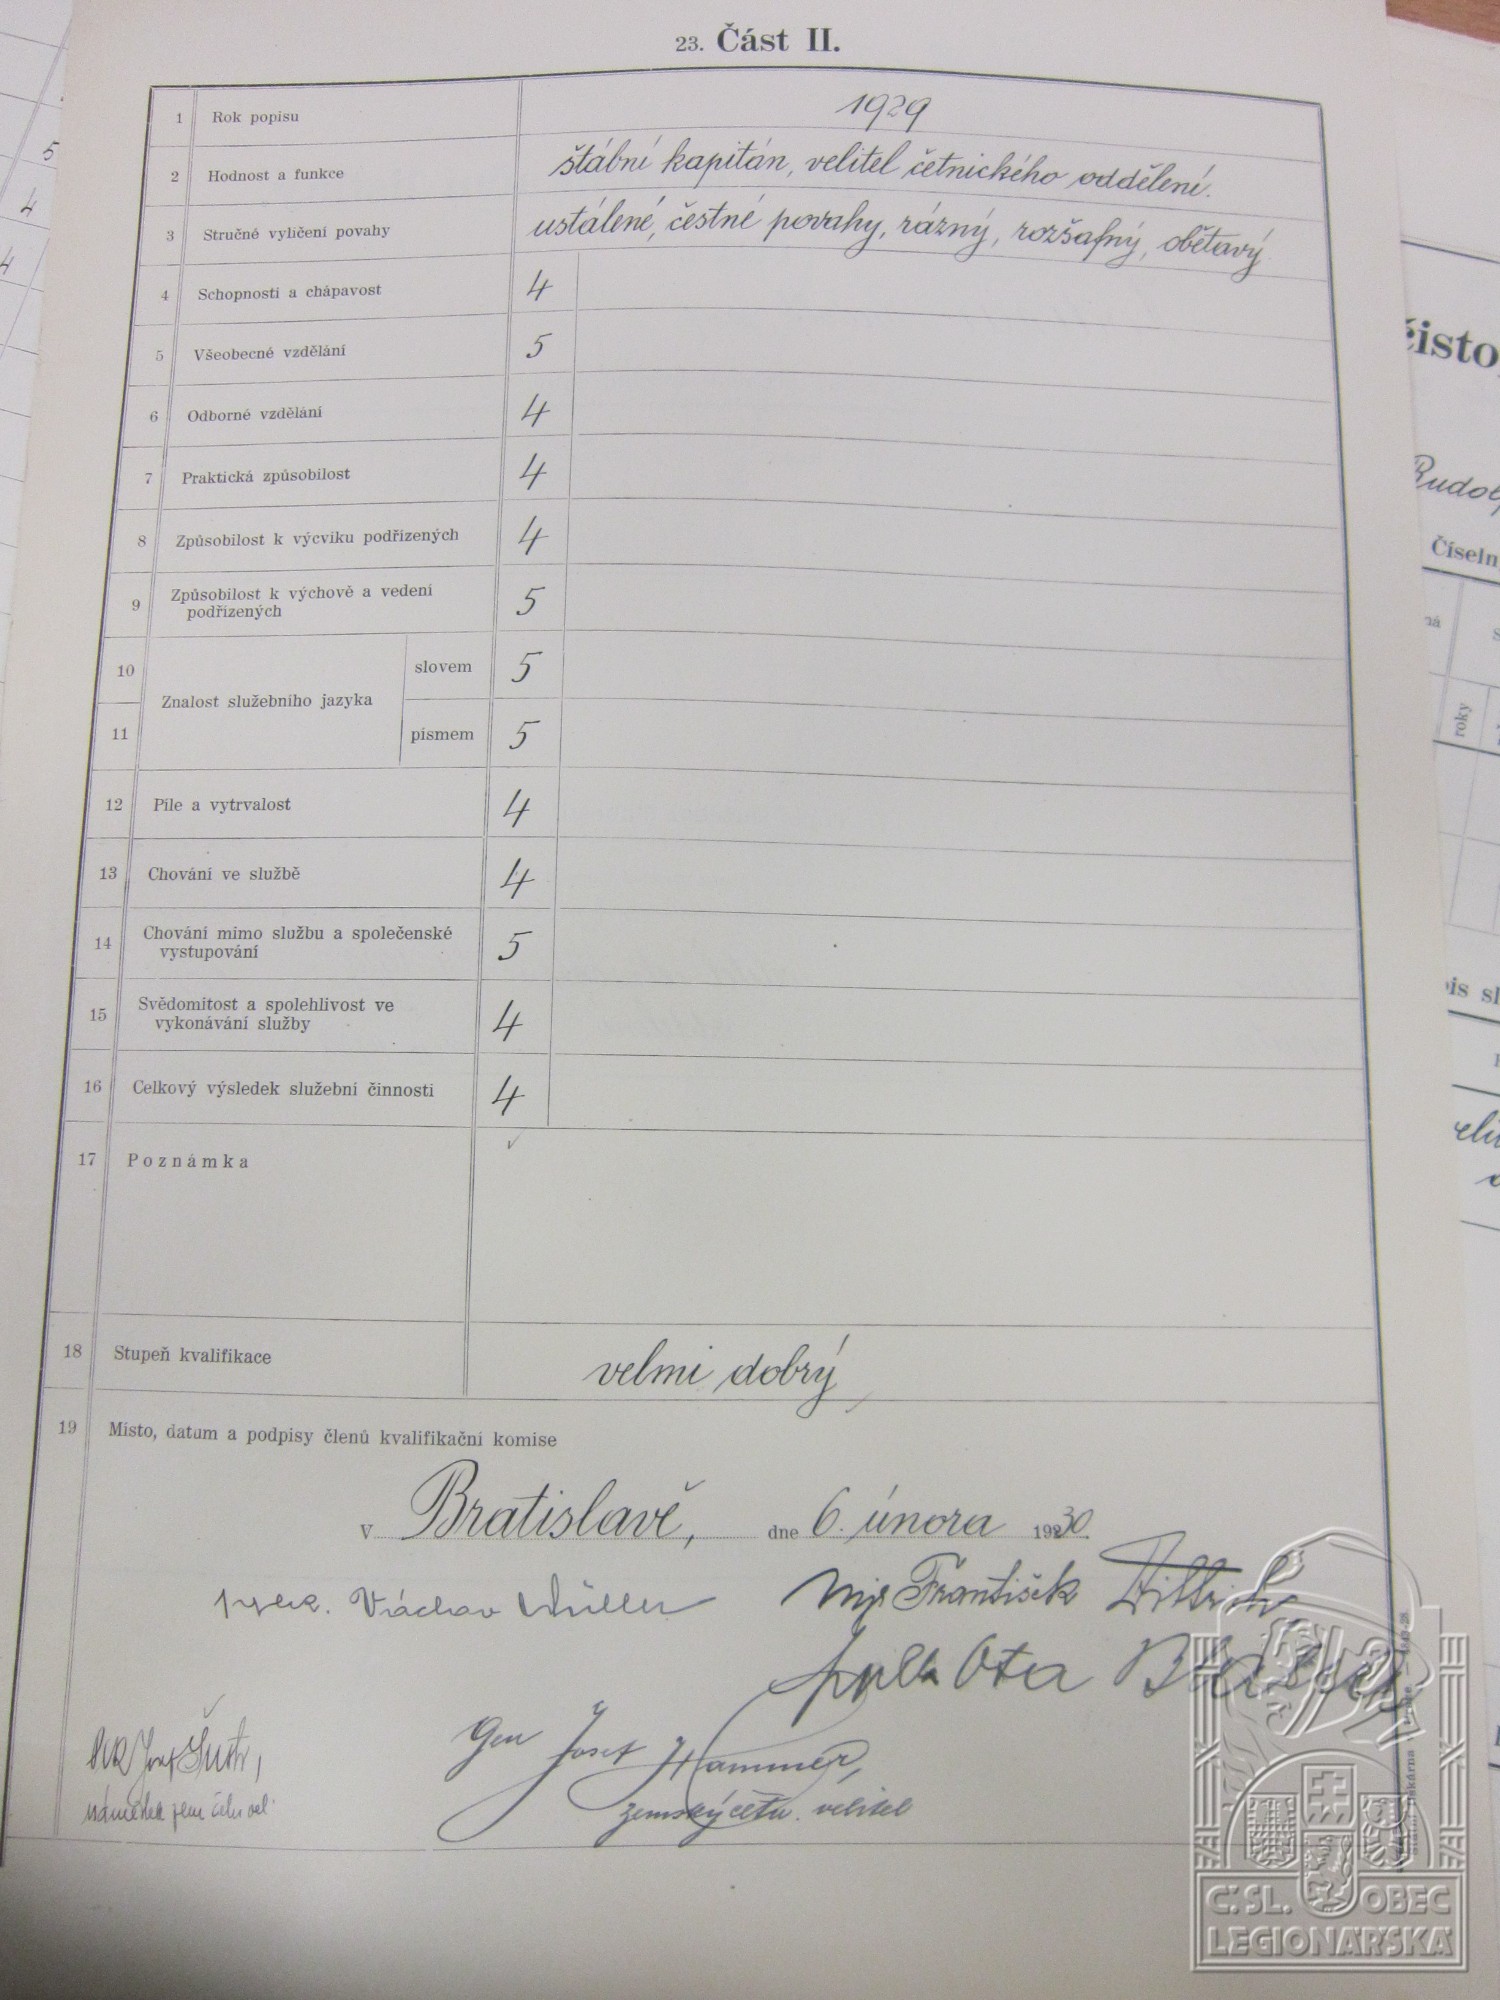 23. Část II.
1 Rok popisu 1929
2 Hodnost a funkce štábní kapitán, velitel četnického oddělení.
3 Stručné vylíčení povahy ustálené, čestné povahy, rázný, rozšafný, obětavý
4 Schopnosti a chápavost 4
5 Všeobecné vzdělání 5
6 Odborné vzdělání 4
7 Praktická způsobilost 4
8 Způsobilost k výcviku podřízených 4
9 Způsobilost k výchově a vedení
podřízených 5
10 slovem 5
Znalost služebního jazyka
11 písmem 5
12 Píle a vytrvalost 4
13 Chování ve službě 4
14 Chování mimo službu a společenské
vystupování 5
15 Svědomitost a spolehlivost ve
vykonávání služby 4
16 Celkový výsledek služební činnosti 4
17 Poznámka
18 Stupeň kvalifikace velmi dobrý
19 Místo, datum a podpisy členů kvalifikační komise
v Bratislavě, dne 6. února 1930.
Václav Müller
František
Ota
Gen Josef Hammer,
zemský četn. velitel
Josef
5
4
4
čisto
Rudol
Číseln
ná
roky
is sl
Č.SL. OBEC
LEGIONÁŘSKÁ